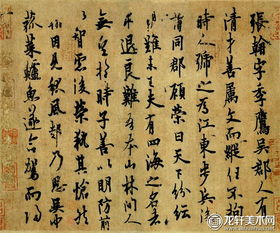 張翰字季鷹吳郡人有
清才善屬文而縱任不拘
時人號之為江東步兵後
謂同郡顧榮曰天下紛紜
禍難未已夫有四海之名者
求退良難吾本山林間人
無望於時子善以明防前
以智慮後榮執其愴然
翰因見秋風起乃思吳中
菰菜鱸魚遂命駕而歸
龙轩美术网